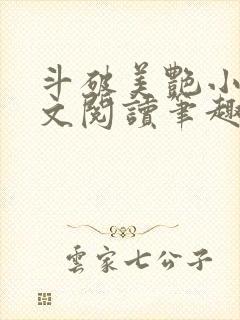 斗破美艷小
文閱讀筆趣
雲家七公子